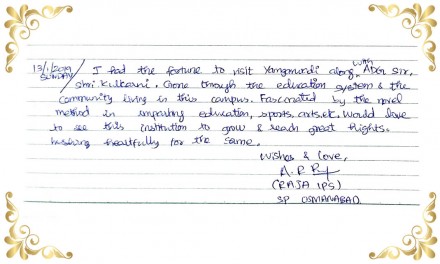 13/1/2019
SUNDAY
I had the fortune to visit Yamgarwadi along with ADG sir,
shri Kulkarni. Gone through the education system & the
community living in this campus. Fascinated by the novel
method in imparting education, sports, arts, etc. Would love
to see this institution to grow & reach great hights.
wishing heartfully for the same.
Wishes & love,
A.R.R
(RAJA IPS)
SP OSMANABAD.